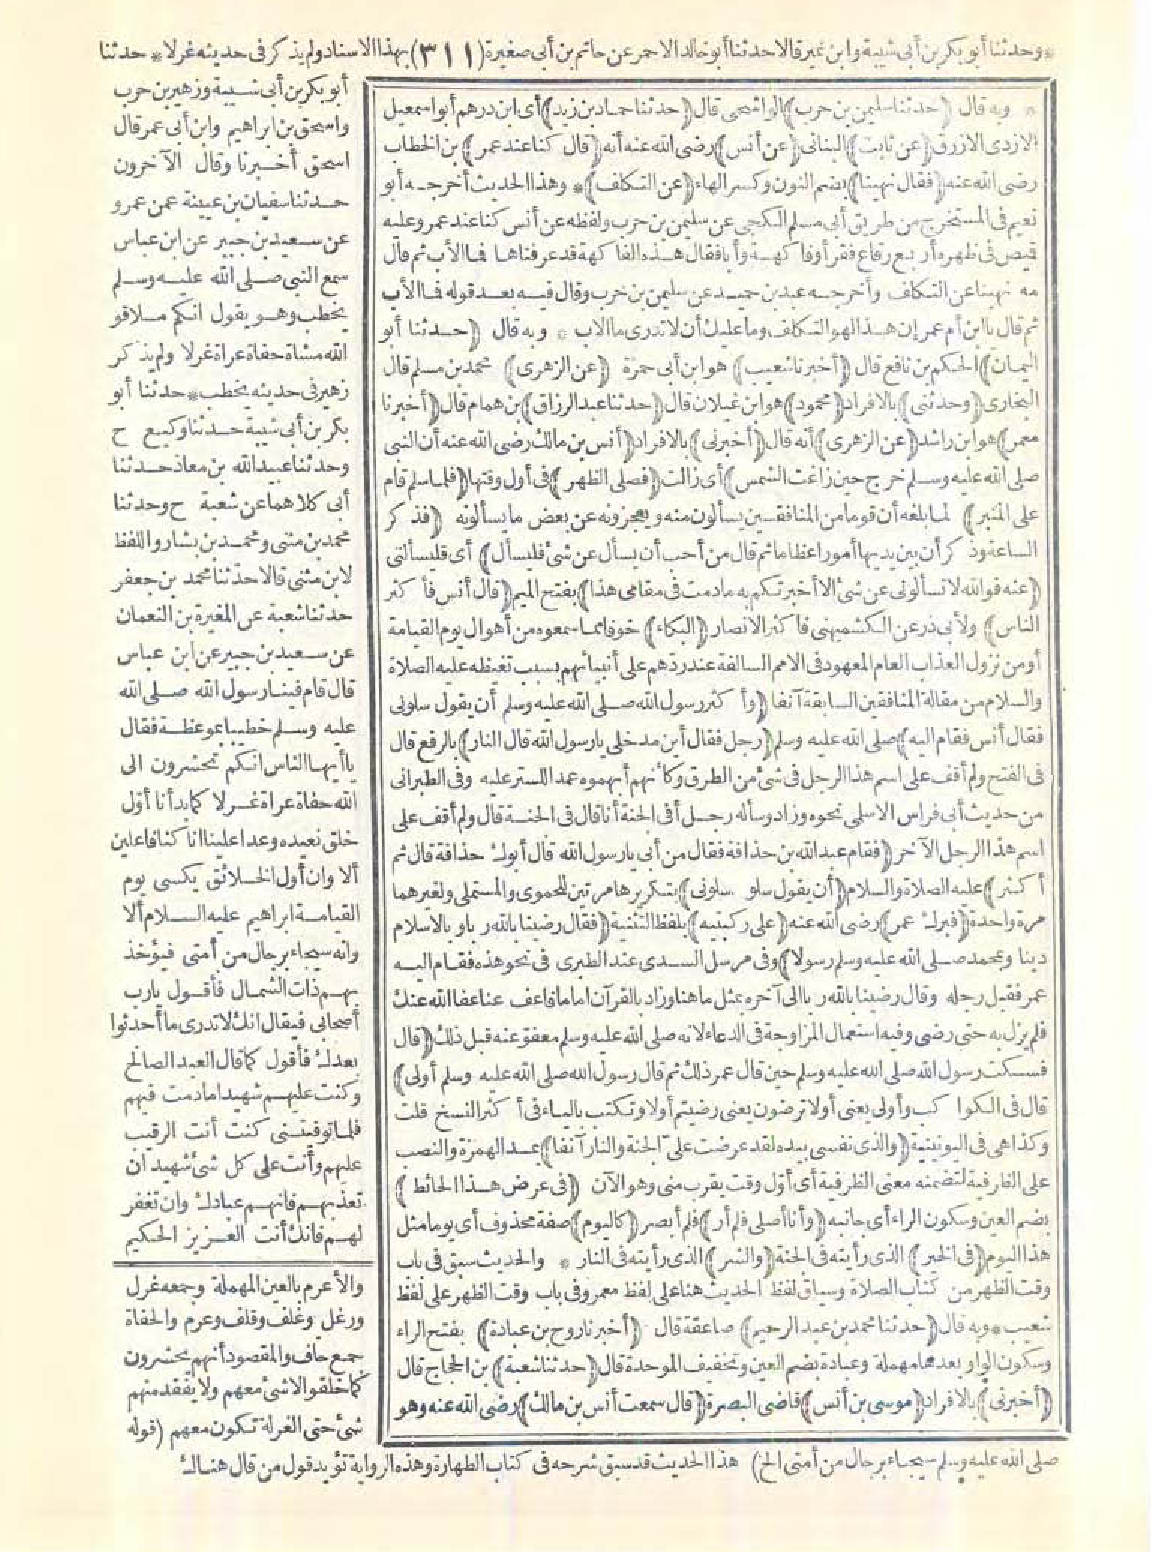 * وحدثنا أبو بكر بن أبي شيبة وابن نمير قالا حدثنا أبو خالد الاحمر عن حاتم بن أبي صغيرة (٣١١) بهذا الاسناد ولم يذكر في حديثه غرلا * حدثنا
أبو بكر بن أبي شيبة وزهير بن حرب
واسحق بن ابراهيم وابن أبي عمر قال
اسحق أخبرنا وقال الآخرون
حدثنا سفيان بن عيينة عن عمرو
عن سعيد بن جبير عن ابن عباس
سمع النبي صلى الله عليه وسلم
يخطب وهو يقول انكم ملاقو
الله مشاة حفاة عراة غرلا ولم يذكر
زهير في حديثه يخطب * حدثنا أبو
بكر بن أبي شيبة حدثنا وكيع ح
وحدثنا عبيد الله بن معاذ حدثنا
أبي كلاهما عن شعبة ح وحدثنا
محمد بن مثنى ومحمد بن بشار واللفظ
لابن مثنى قالا حدثنا محمد بن جعفر
حدثنا شعبة عن المغيرة بن النعمان
عن سعيد بن جبير عن ابن عباس
قال قام فينا رسول الله صلى الله
عليه وسلم خطيبا بموعظة فقال
يا أيها الناس انكم تحشرون الى
الله حفاة عراة غرلا كما بدأنا أول
خلق نعيده وعدا علينا انا كنا فاعلين
ألا وان أول الخلائق يكسى يوم
القيامة ابراهيم عليه السلام ألا
وانه سيجاء برجال من أمتي فيؤخذ
بهم ذات الشمال فأقول يارب
أصحابي فيقال انك لا تدري ما أحدثوا
بعدك فأقول كما قال العبد الصالح
وكنت عليهم شهيدا ما دمت فيهم
فلما توفيتني كنت أنت الرقيب
عليهم وأنت على كل شئ شهيد ان
تعذبهم فانهم عبادك وان تغفر
لهم فانك أنت العزيز الحكيم
والأعرم بالعين المهملة وجمعه غرل
ورغل وغلف وقلف وعرم والحفاة
جمع حاف والمقصود أنهم يحشرون
كما خلقوا لا شئ معهم ولا يفقد منهم
شئ حتى الغرلة تكون معهم (قوله
* وبه قال (حدثنا سليمن بن حرب) الواشحى قال (حدثنا حماد بن زيد) أى ابن درهم أبو اسمعيل
الازدى الازرق (عن ثابت) البناني (عن أنس) رضى الله عنه أنه (قال كنا عند عمر) بن الخطاب
رضى الله عنه (فقال نهينا) بضم النون وكسر الهاء (عن التكلف) * وهذا الحديث أخرجه أبو
نعيم في المستخرج من طريق أبي مسلم الكجى عن سليمن بن حرب ولفظه عن أنس كنا عند عمر وعليه
قميص في ظهره أربع رقاع فقرأ وفاكهة وأبا فقال هذه الفاكهة قد عرفناها فما الأب ثم قال
مه نهينا عن التكلف وأخرجه عبد بن حميد عن سليمن بن حرب وقال فيه بعد قوله فما الأب
ثم قال يا ابن أم عمر إن هذا لهو التكلف وما عليك أن لا تدرى ما الاب * وبه قال (حدثنا أبو
اليمان) الحكم بن نافع قال (أخبرنا شعيب) هو ابن أبي حمزة (عن الزهرى) محمد بن مسلم قال
البخارى (وحدثنى) بالافراد (محمود) هو ابن غيلان قال (حدثنا عبد الرزاق) بن همام قال (أخبرنا
معمر) هو ابن راشد (عن الزهرى) أنه قال (أخبرنى) بالافراد (أنس بن مالك رضى الله عنه أن النبي
صلى الله عليه وسلم خرج حين زاغت الشمس) أى زالت (فصلى الظهر) في أول وقتها (فلما سلم قام
على المنبر) لما بلغه أن قوما من المنافقين يسألون منه ويعجزونه عن بعض ما يسألونه (فذكر
الساعة وذكر أن بين يديها أمورا عظاما ثم قال من أحب أن يسأل عن شئ فليسأل) أى فليسألنى
(عنه فوالله لا تسألونى عن شئ الا أخبرتكم به ما دمت في مقامى هذا) بفتح الميم (قال أنس فأكثر
الناس) ولأبي ذر عن الكشميهنى فأكثر الانصار (البكاء) خوفا مما سمعوه من أهوال يوم القيامة
أو من نزول العذاب العام المعهود في الامم السالفة عند ردهم على أنبيائهم بسبب تغيظه عليه الصلاة
والسلام من مقالة المنافقين السابقة آنفا (وأكثر رسول الله صلى الله عليه وسلم أن يقول سلونى
فقال أنس فقام اليه) صلى الله عليه وسلم (رجل فقال أين مدخلى يا رسول الله قال النار) بالرفع قال
في الفتح ولم أقف على اسم هذا الرجل في شئ من الطرق وكأنهم أبهموه عمدا للستر عليه وفي الطبرانى
من حديث أبي فراس الاسلمى نحوه وزاد وسأله رجل أفي الجنة أنا قال في الجنة قال ولم أقف على
اسم هذا الرجل الآخر (فقام عبد الله بن حذافة فقال من أبي يا رسول الله قال أبوك حذافة قال ثم
أكثر) عليه الصلاة والسلام (أن يقول سلونى سلونى) بتكريرها مرتين للحموى والمستملى ولغيرهما
مرة واحدة (فبرك عمر) رضى الله عنه (على ركبتيه) بلفظ التثنية (فقال رضينا بالله ربا وبالاسلام
دينا وبمحمد صلى الله عليه وسلم رسولا) وفي مرسل السدى عند الطبرى في نحو هذه فقام اليه
عمر فقبل رجله وقال رضينا بالله ربا الى آخره بمثل ما هنا وزاد بالقرآن اماما فاعف عنا عفا الله عنك
فلم يزل به حتى رضى وفيه استعمال المزاوجة في الدعاء لانه صلى الله عليه وسلم معفو عنه قبل ذلك (قال
فسكت رسول الله صلى الله عليه وسلم حين قال عمر ذلك ثم قال رسول الله صلى الله عليه وسلم أولى)
قال في الكواكب وأولى يعنى أولا ترضون يعنى رضيتم أولا وتكتب بالياء في أكثر النسخ قلت
وكذا هى في اليونينية (والذى نفسى بيده لقد عرضت على الجنة والنار آنفا) بمد الهمزة والنصب
على الظرفية لتضمنه معنى الظرفية أى أول وقت يقرب منى وهو الآن (في عرض هذا الحائط)
بضم العين وسكون الراء أى جانبه (وأنا أصلى فلم أر) فلم أبصر (كاليوم) صفة محذوف أى يوما مثل
هذا اليوم (في الخير) الذى رأيته في الجنة (والشر) الذى رأيته في النار * والحديث سبق في باب
وقت الظهر من كتاب الصلاة وسياق لفظ الحديث هنا على لفظ معمر وفي باب وقت الظهر على لفظ
شعيب * وبه قال (حدثنا محمد بن عبد الرحيم) صاعقة قال (أخبرنا روح بن عبادة) بفتح الراء
وسكون الواو بعدها مهملة وعبادة بضم العين وتخفيف الموحدة قال (حدثنا شعبة) بن الحجاج قال
(أخبرنى) بالافراد (موسى بن أنس) قاضى البصرة (قال سمعت أنس بن مالك) رضى الله عنه وهو
صلى الله عليه وسلم سيجاء برجال من أمتى الخ) هذا الحديث قد سبق شرحه في كتاب الطهارة وهذه الرواية تؤيد قول من قال هناك